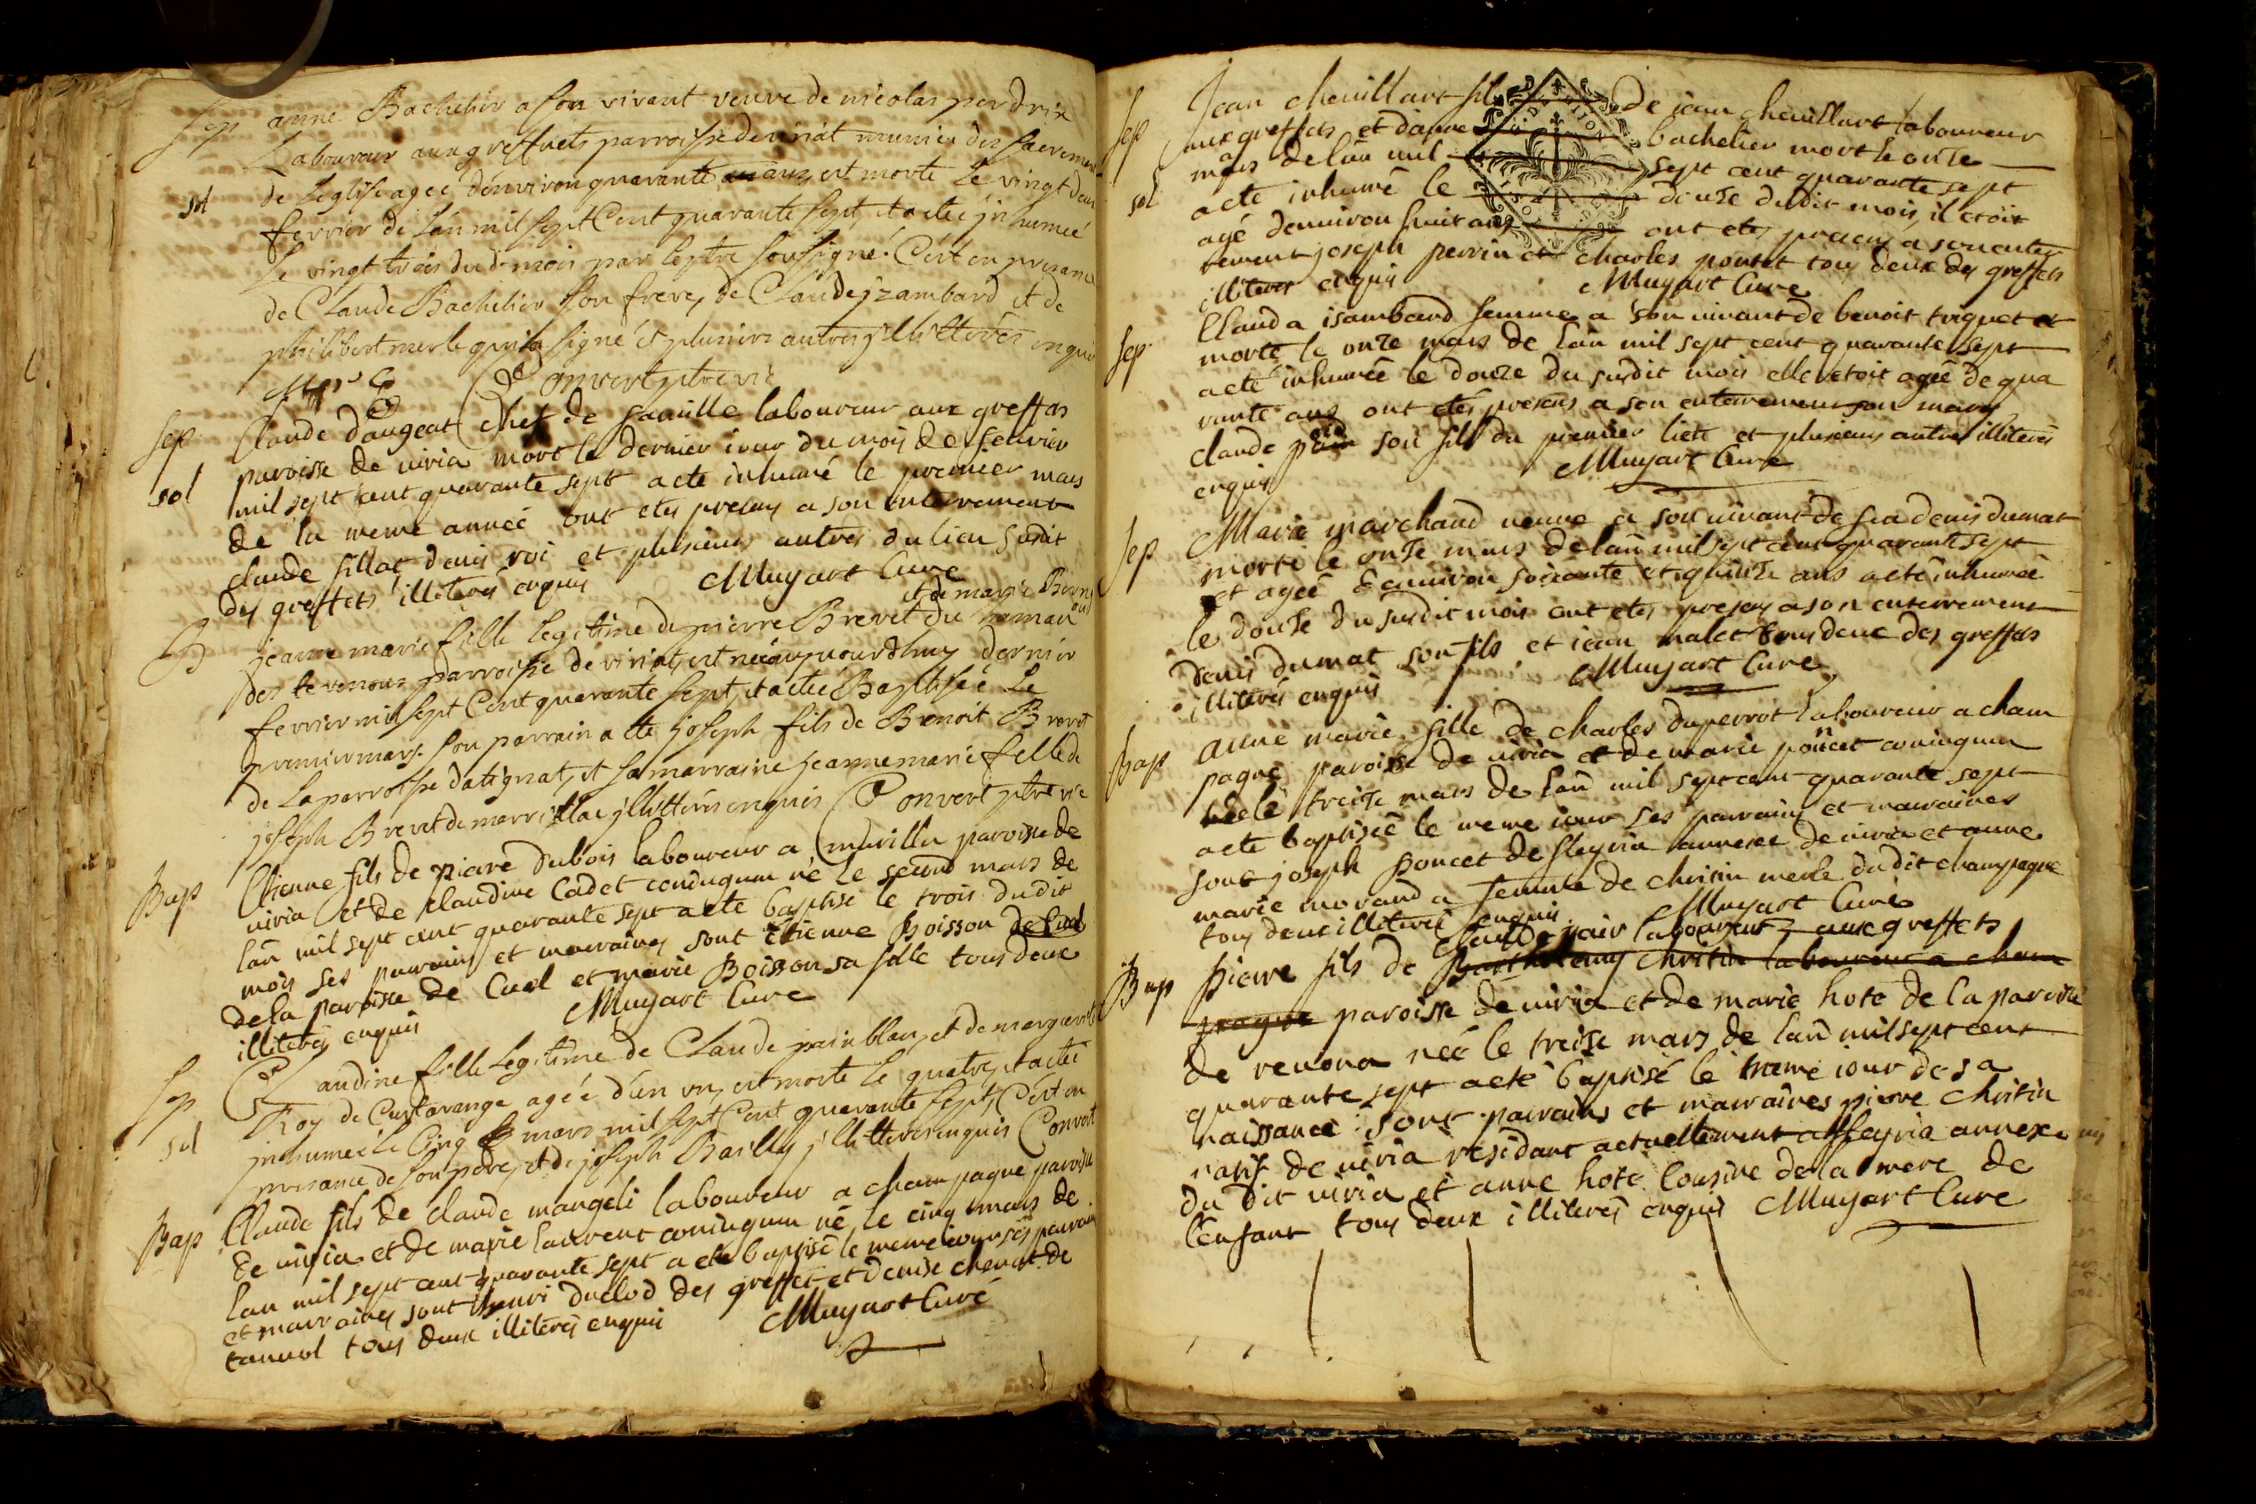 Sep
anne Bachelier a son vivant veuve de nicolas perdrix
Laboureur aux greffets parroisse de viriat munie des sacremens
sol
de Leglise agée denviron quarante ans est morte Le vingt deux
fevrier de Lan mil sept Cent quarante sept, et a eté jnhumeé
Le vingt trois dud. mois par le ptre soussigné. C'est en presance
de Claude Bachelier son frere, de Claude jzambard et de
philibert merle qui a signé et plusieurs autres jllitterés enquis
Convert ptre vic
Sep
Claude dangeat chef de famille laboureur aux greffets
paroisse de viria mort le dernier iour du mois de fevrier
sol
mil sept cent quarante sept a eté inhumé le premier mars
de la meme année ont etés presens a son enterrement
claude fillat denis roi et plusieurs autres du lieu susdit
des greffets illiterés enquis Muyart Curé
et de marie Bern
B
jeanne marie fille legitime de pierre Brevet du
des parroisse de viriat, est née aujourdhuy dernier
fevrier mil sept Cent quarante sept, et a eté Baptisée Le
premier mars. son parrain a eté joseph fils de Benoit Brevet
de La parroisse datignat, et sa marraine jeanne marie fille de
joseph Brevet de jllitterés enquis Convert ptre vic
Bap
Etienne fils de Piere Dubois laboureur a marilla paroisse de
viria et de claudine Cadet coniugum né le second mars de
lan mil sept cent quarante sept a eté baptisé le trois dudit
mois ses parrains et marraines sont Etienne Boisson de Cuel
de la paroisse de Cuel et marie Boisson sa fille tous deux
illiterés enquis Muyart Curé
Sep
Claudine fille Legitime de Claude painblanc, et de marguerite
sol
Roy de Curtarange agée d'un an, est morte le quatre, et a eté
jnhumeé le Cinq mars mil sept Cent quarante sept, C'est en
presance de son pere, et de joseph Bailly jllitterés enquis Convert
Bap
Claude fils de claude mangeli laboureur a champagne paroisse
de viria et de marie laurent coniugum né le cinq mars de
lan mil sept cent quarante sept a eté baptisé le meme iour ses parrain
et marraines sont henri duclod des greffet et denise chenat de
tanvol tous deux illiterés enquis Muyart Curé
Sep
Jean chevillart fils de iean chevillart laboureur
aux greffets et danne bachelier mort le onze
mars de lan mil sept cent quarante sept
sol
a eté inhumé le douze dudit mois, il etoit
agé denviron huit ans ont etés presens a son enter
rement joseph perrin et charles poncet tous deux des greffets
illiterés enquis Muyart Curé
Sep
Clauda isambard femme a son vivant de benoit triquet et
morte le onze mars de lan mil sept cent quarante sept
a eté inhumée le douze du susdit mois elle etoit agée de qua
rante ans ont etés presens a son enterrement son mary
claude son fils du premier liete et plusieurs autres illiterés
enquis Muyart Curé
Sep
Marie marchand veuve a son vivant de feu denis dumat
morte le onze mars de lan mil sept cent quarante sept
et agée denviron soixante et quinze ans a eté inhumée
le douze du susdit mois ont etés presens a son enterrement
denis dumat son fils et iean malet tous deux des greffets
illiterés enquis Muyart Curé
Bap
anne marie fille de charles duperrot laboureur a cham
pagne paroisse de viria et de marie poncet coniugum
née le treize mars de lan mil sept cent quarante sept
a eté baptisée le meme iour ses parrains et marraines
sont joseph poncet de fleyria annexe de viria et anne
marie morand a femme de christin merle dudit champagne
tous deux illiterés enquis Muyart Curé
Claude pair laboureur aux greffets
Bap
Pierre fils de Barthelemy christin laboureur a cham
pagne paroisse de viria et de marie hote de la paroisse
de revona née le treize mars de lan mil sept cent
quarante sept a eté baptisé le meme iour de sa
naissance sont parrains et marraines pierre christin
natif de viria residant actuellement a fleyria annexe
du dit viria et anne hote Cousine de la mere de
l'enfant tous deux illiterés enquis Muyart Curé